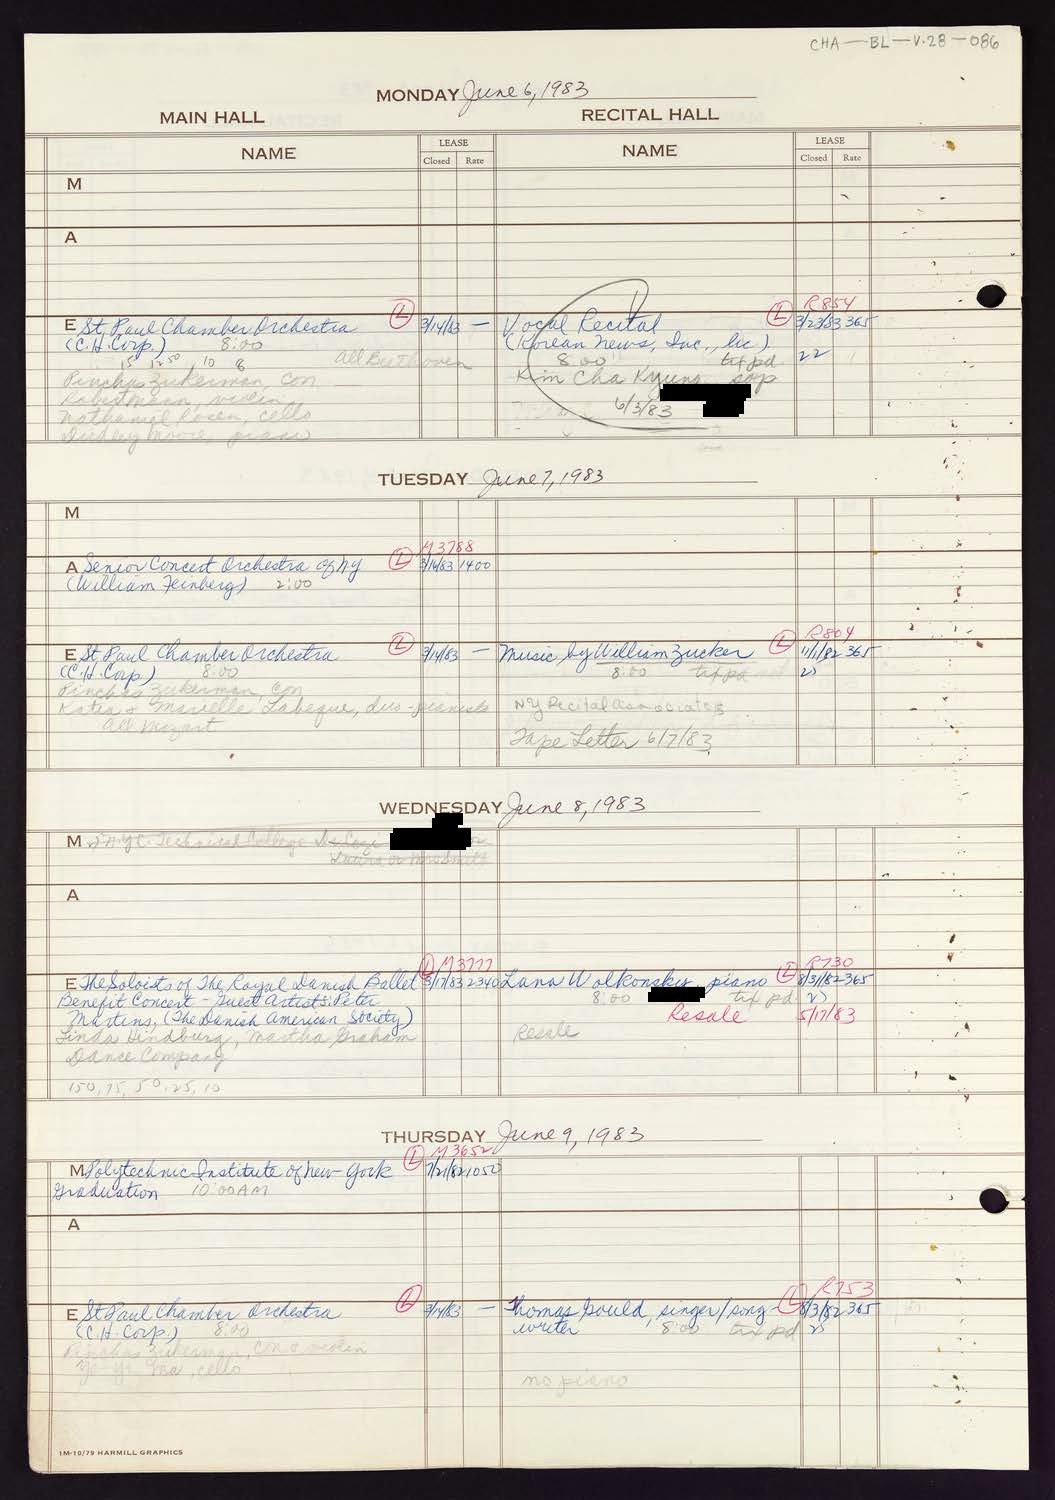 CHA—BL—V.28—086
MONDAY June 6, 1983
MAIN HALL RECITAL HALL
NAME LEASE Closed Rate NAME LEASE Closed Rate
M
A
R854
E St. Paul Chamber Orchestra (L) 3/14/83 — Vocal Recital (L) 3/23/83 365
(C.H. Corp.) 8:00 (Korean News, Inc., lic)
15 12.50 10 8 All Beethoven 8:00 tix pd 22
Pinchas Zukerman, con Kim Cha Kyung sop
Robert Mann, violin 6/3/83
Nathaniel Rosen, cello
Dudley Moore, piano
TUESDAY June 7, 1983
M
M3788
A Senior Concert Orchestra of NY (L) 3/16/83 1400
(William Feinberg) 2:00
R804
E St Paul Chamber Orchestra (L) 3/14/83 — Music by William Zucker (L) 11/1/82 365
(C.H. Corp) 8:00 8:00 tix pd
Pinchas Zukerman, con
Katia & Marielle Labeque, duo-pianists NY Recital Associates
All Mozart
Tape Letter 6/7/83
WEDNESDAY June 8, 1983
M N.Y.C. Technical College
A
M3777 R730
E The Soloists of The Royal Danish Ballet (L) 3/17/83 2340 Lana Wolkonsky, piano (L) 8/31/82 365
Benefit Concert - Guest Artists: Peter 8:00 tix pd
Martins, (The Danish American Society) Resale 5/17/83
Linda Hindburg, Martha Graham Resale
Dance Company
150, 75, 50, 25, 10
THURSDAY June 9, 1983
M3652
M Polytechnic Institute of New York (L) 7/21/82 1050
Graduation 10:00 AM
A
R753
E St Paul Chamber Orchestra (L) 3/14/83 — Thomas Gould, singer/song- (L) 8/3/82 365
(C.H. Corp.) 8:00 writer 8:00 tix pd
Pinchas Zukerman, con & violin
Yo-Yo Ma, cello
no piano
1M-10/79 HARMILL GRAPHICS